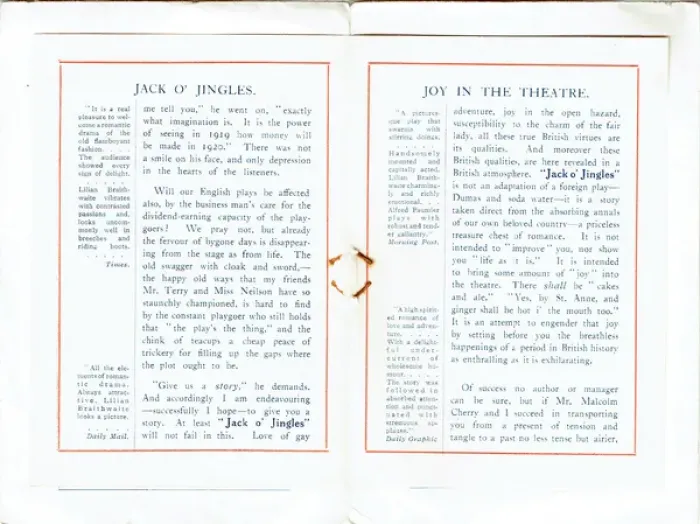 JACK O' JINGLES.
"It is a real
pleasure to wel-
come a romantic
drama of the
old flamboyant
fashion. . . .
The audience
showed every
sign of delight.
. . . . .
Lilian Braith-
waite vibrates
with contrasted
passions and,
looks uncom-
monly well in
breeches and
riding boots.
. . . . .
Times.
"All the ele-
ments of roman-
tic drama.
Always attrac-
tive, Lilian
Braithwaite
looks a picture.
. . . . .
Daily Mail.
me tell you," he went on, "exactly
what imagination is. It is the power
of seeing in 1919 how money will
be made in 1920." There was not
a smile on his face, and only depression
in the hearts of the listeners.
Will our English plays be affected
also, by the business man's care for the
dividend-earning capacity of the play-
goers? We pray not, but already
the fervour of bygone days is disappear-
ing from the stage as from life. The
old swagger with cloak and sword,—
the happy old ways that my friends
Mr. Terry and Miss Neilson have so
staunchly championed, is hard to find
by the constant playgoer who still holds
that "the play's the thing," and the
chink of teacups a cheap peace of
trickery for filling up the gaps where
the plot ought to be.
"Give us a story," he demands.
And accordingly I am endeavouring
—successfully I hope—to give you a
story. At least "Jack o' Jingles"
will not fail in this. Love of gay
JOY IN THE THEATRE.
"A pictures-
que play that
swarms with
stirring doings.
. . . . .
Handsomely
mounted and
capitally acted.
Lilian Braith-
waite charming-
ly and richly
emotional. . .
Alfred Paumier
plays with
robust and tend-
er gallantry."
Morning Post.
"A high spirit-
ed romance of
love and adven-
ture. . . . .
With a delight-
ful under-
current of
wholesome hu-
mour. . . . .
The story was
followed in
absorbed atten-
tion and punct-
uated with
strenuous ap-
plause."
Daily Graphic
adventure, joy in the open hazard,
susceptibility to the charm of the fair
lady, all these true British virtues are
its qualities. And moreover these
British qualities, are here revealed in a
British atmosphere. "Jack o' Jingles"
is not an adaptation of a foreign play—
Dumas and soda water—it is a story
taken direct from the absorbing annals
of our own beloved country—a priceless
treasure chest of romance. It is not
intended to "improve" you, nor show
you "life as it is." It is intended
to bring some amount of "joy" into
the theatre. There shall be "cakes
and ale." "Yes, by St. Anne, and
ginger shall be hot i' the mouth too."
It is an attempt to engender that joy
by setting before you the breathless
happenings of a period in British history
as enthralling as it is exhilarating.
Of success no author or manager
can be sure, but if Mr. Malcolm
Cherry and I succeed in transporting
you from a present of tension and
tangle to a past no less tense but airier,